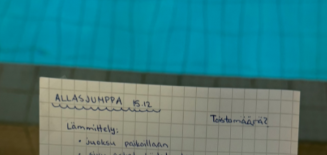 ALLASJUMPPA 15.12
Toistomäärä?
Lämmittely:
• juoksu paikallaan